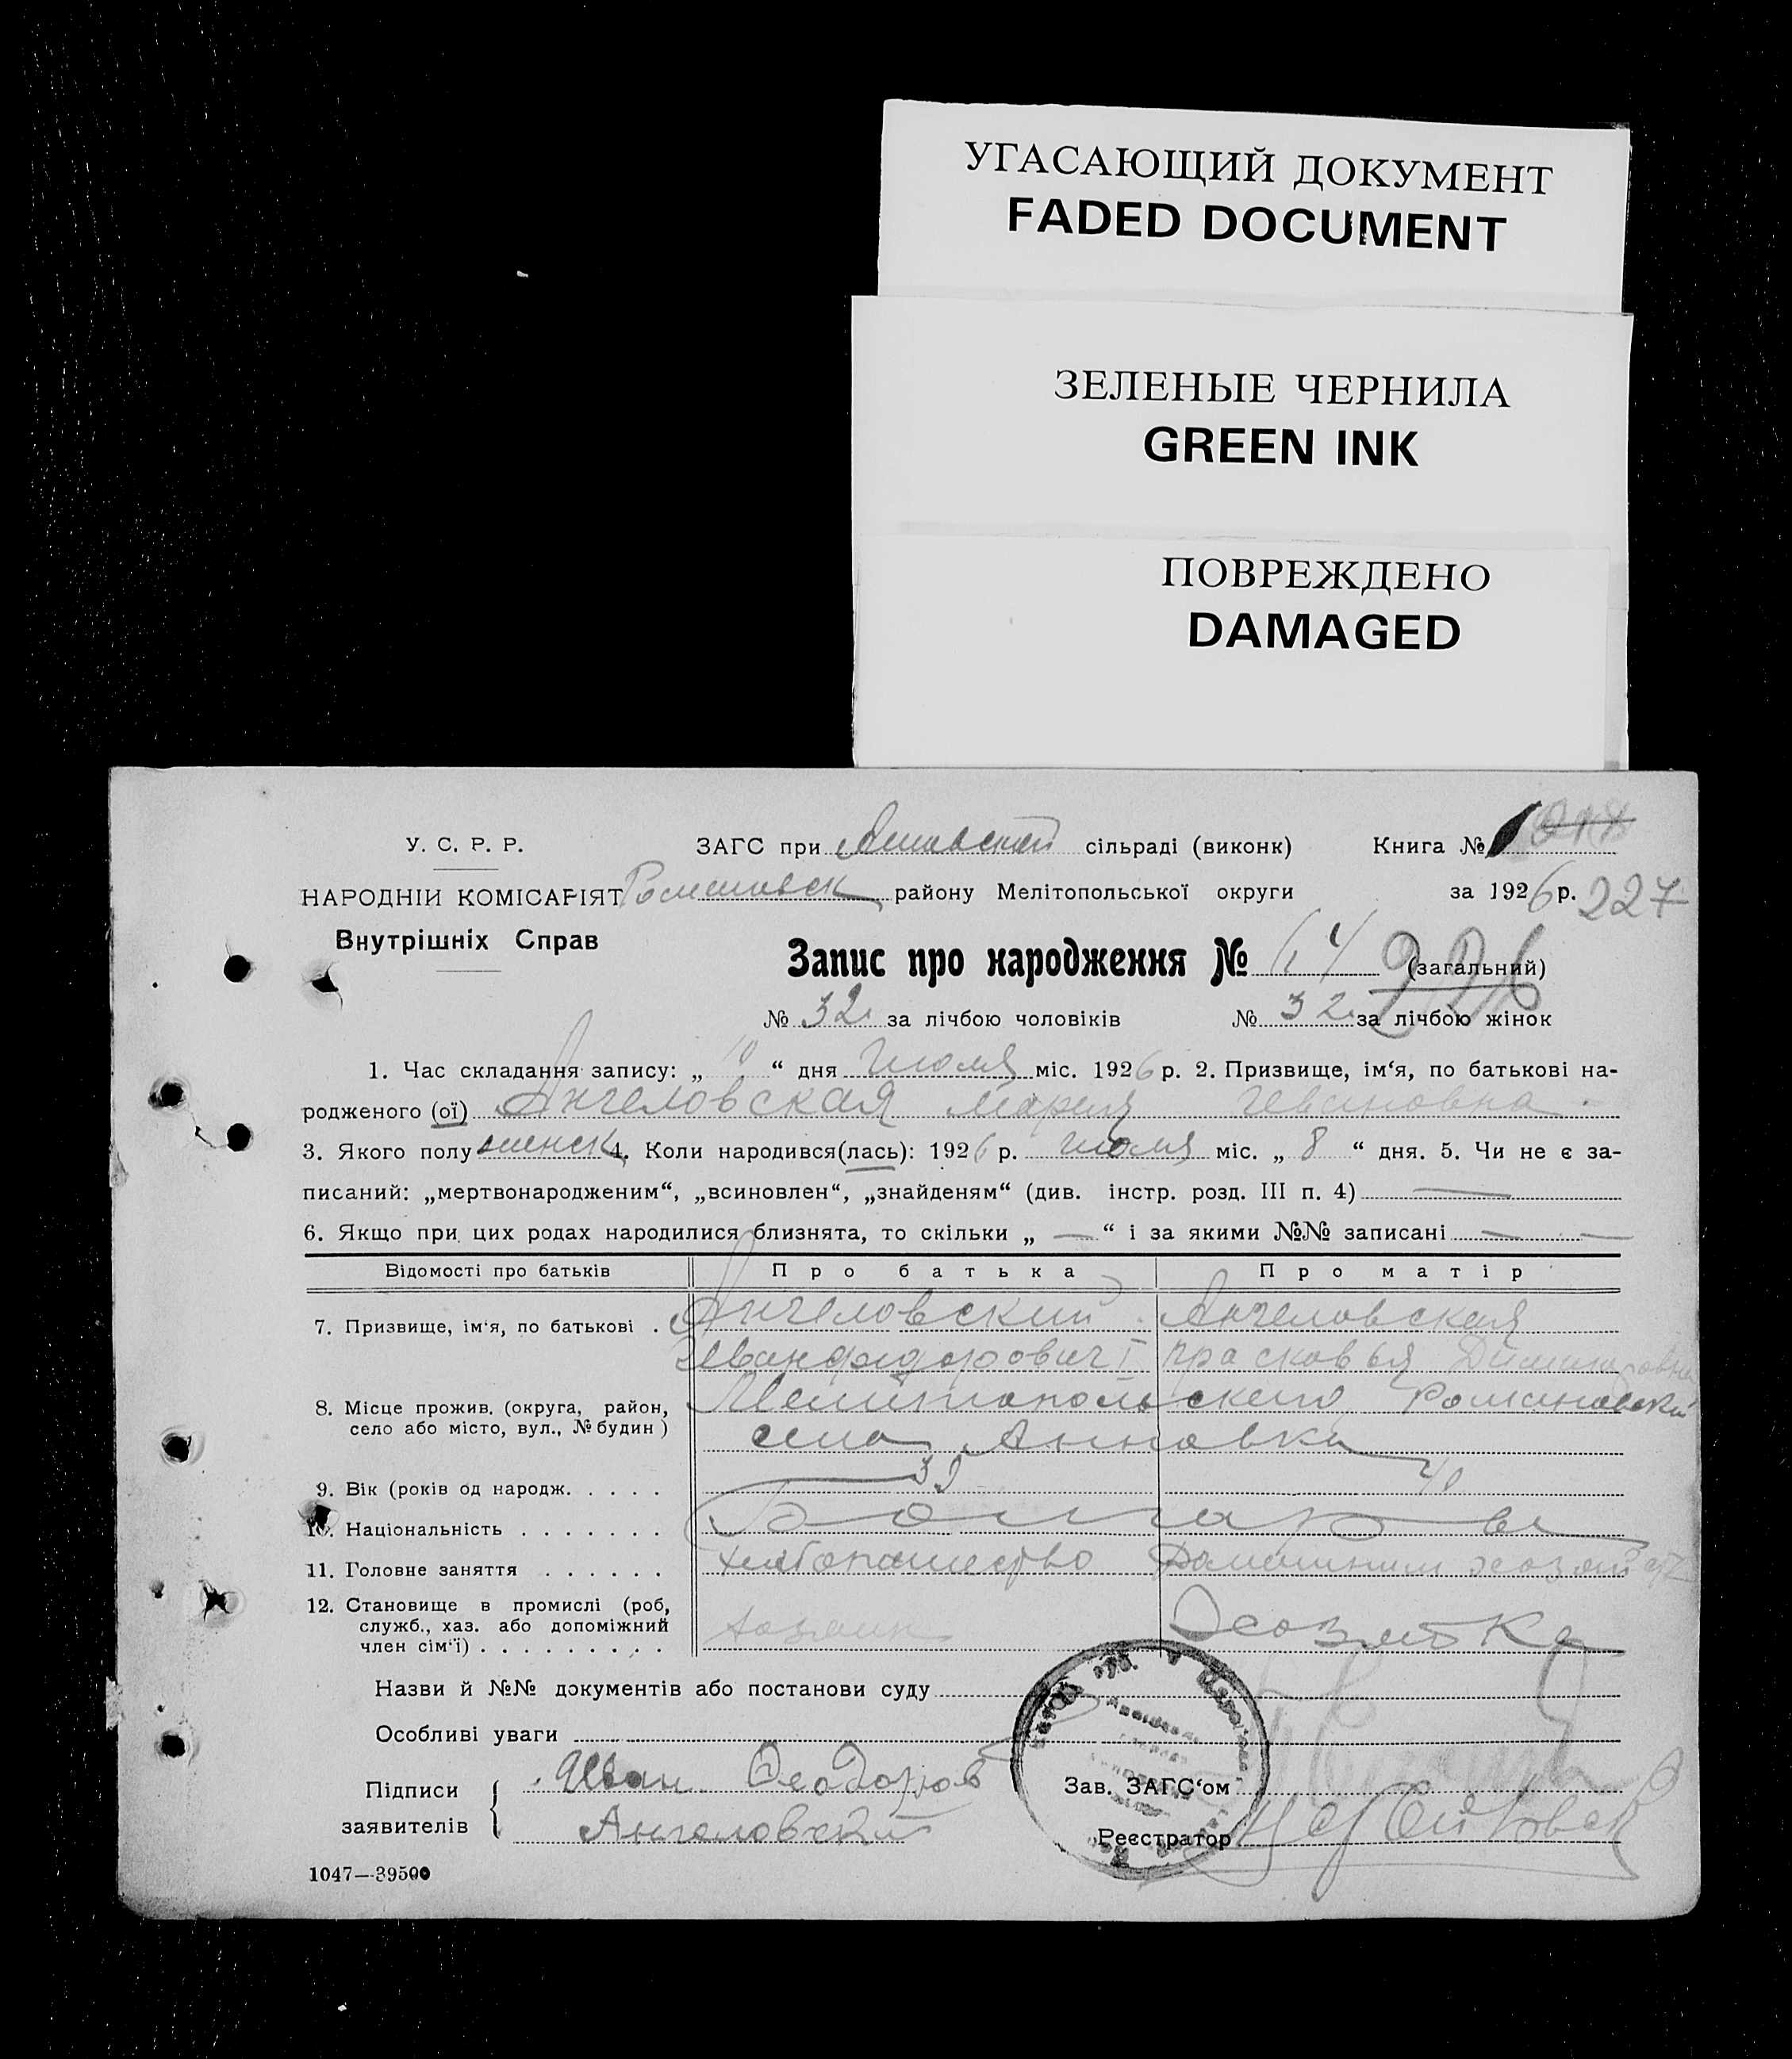 УГАСАЮЩИЙ ДОКУМЕНТ
FADED DOCUMENT
ЗЕЛЕНЫЕ ЧЕРНИЛА
GREEN INK
ПОВРЕЖДЕНО
DAMAGED
У. С. Р. Р.
ЗАГС при сільраді (виконк) Книга №
НАРОДНІЙ КОМІСАРІЯТ району Мелітопольської округи за 1926 р. 227
Внутрішніх Справ
Запис про народження № 64 (загальний) 226
№ 32 за лічбою чоловіків № 32 за лічбою жінок
1. Час складання запису: „ 10 “ дня Июля міс. 1926 р. 2. Призвище, ім‘я, по батькові на-
родженого (ої) Ангеловская Мария Ивановна
3. Якого полу женск 4. Коли народився(лась): 1926 р. июля міс. „ 8 “ дня. 5. Чи не є за-
писаний: „мертвонародженим“, „всиновлен“, „знайденям“ (див. інстр. розд. III п. 4) —
6. Якщо при цих родах народилися близнята, то скільки „ — “ і за якими №№ записані — —
Відомості про батьків Про батька Про матір
7. Призвище, ім‘я, по батькові . Ангеловский Ангеловская
Иван Фядорович Прасковья Димитровна
8. Місце прожив. (округа, район, Мелитопольского Романовски
село або місто, вул., № будин) села Анновки
9. Вік (років од народж. . . . . 39 40
10. Національність . . . . . . . Болгары
11. Головне заняття . . . . . . хлебопашество Домашним
12. Становище в промислі (роб,
служб., хаз. або допоміжний хозяин Хозяйка
член сім‘ї) . . . . . . . . .
Назви й №№ документів або постанови суду
Особливі уваги
Підписи Иван Феодоров
Зав. ЗАГС‘ом
заявителів Ангеловский
Реєстратор
1047—39500